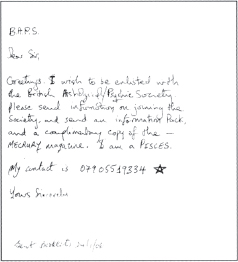 B.A.P.S.
Dear Sir,
Greetings. I wish to be enlisted with
the British /Psychic Society.
Please send information on joining the
Society, and send an information Pack,
and a complimentary copy of the —
MECRURY magazine. I am a PISCES.
My contact is 07905519334 ☆
Yours Sincerely